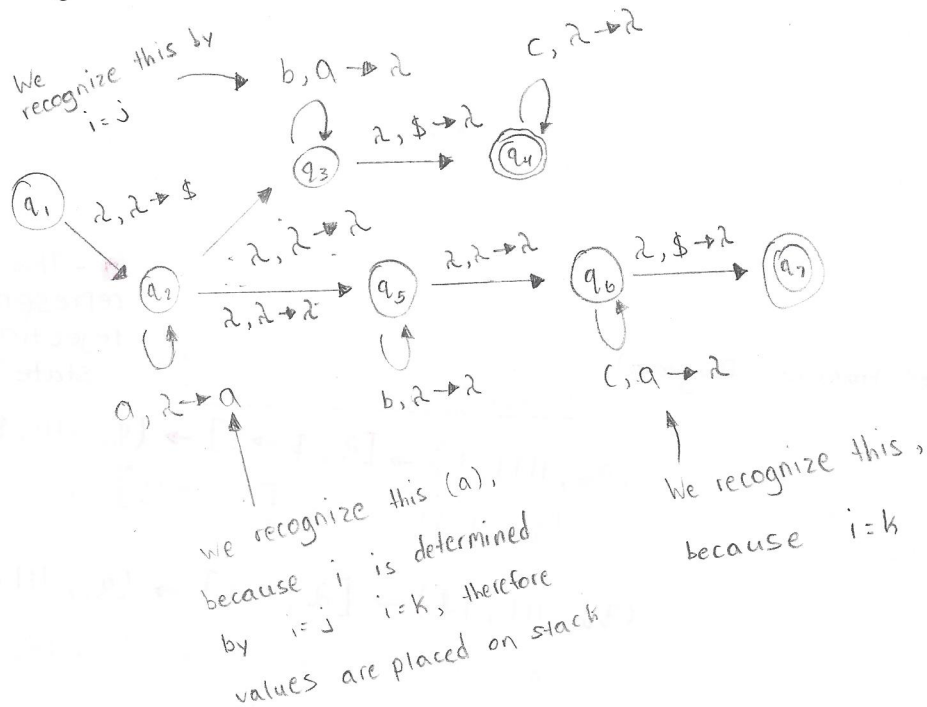 We
recognize this by
i=j
b, a → λ
c, λ→λ
q3
λ, $→λ
q4
q1
λ, λ→ $
q2
λ, λ→λ
λ, λ→λ
q5
λ, λ→λ
q6
λ, $→λ
q7
a, λ→a
b, λ→λ
c, a → λ
we recognize this (a),
because i is determined
by i=j i=k, therefore
values are placed on stack
We recognize this,
because i=k